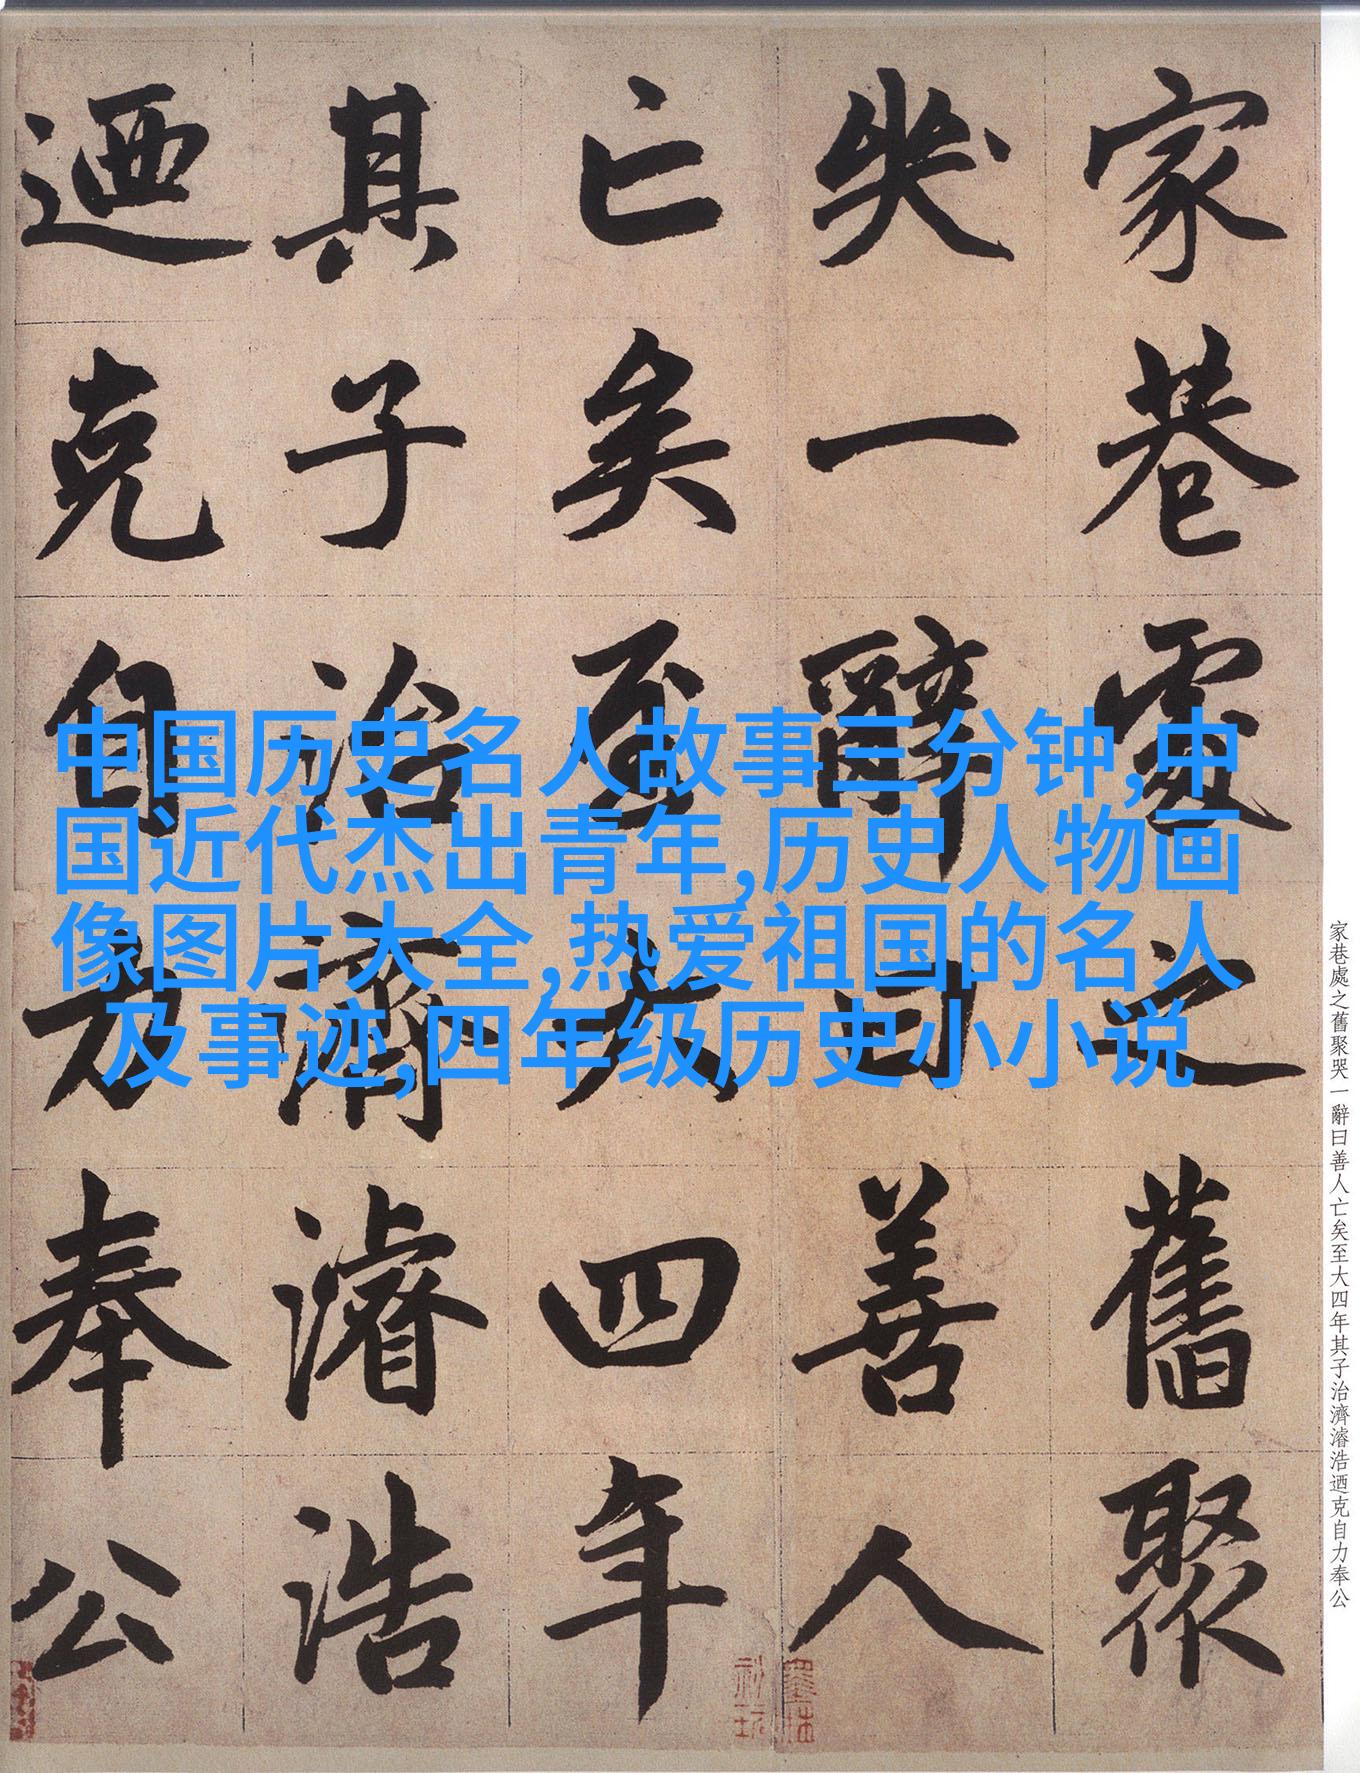 家巷處之舊聚
哭一辭曰善人
亡矣至大四年
其子治濟濬浩
迺克自力奉公
中国历史名人故事三分钟,中
国近代杰出青年,历史人物画
像图片大全,热爱祖国的名人
及事迹,四年级历史小小说
家巷處之舊聚哭一辭曰善人亡矣至大四年其子治濟濬浩迺克自力奉公